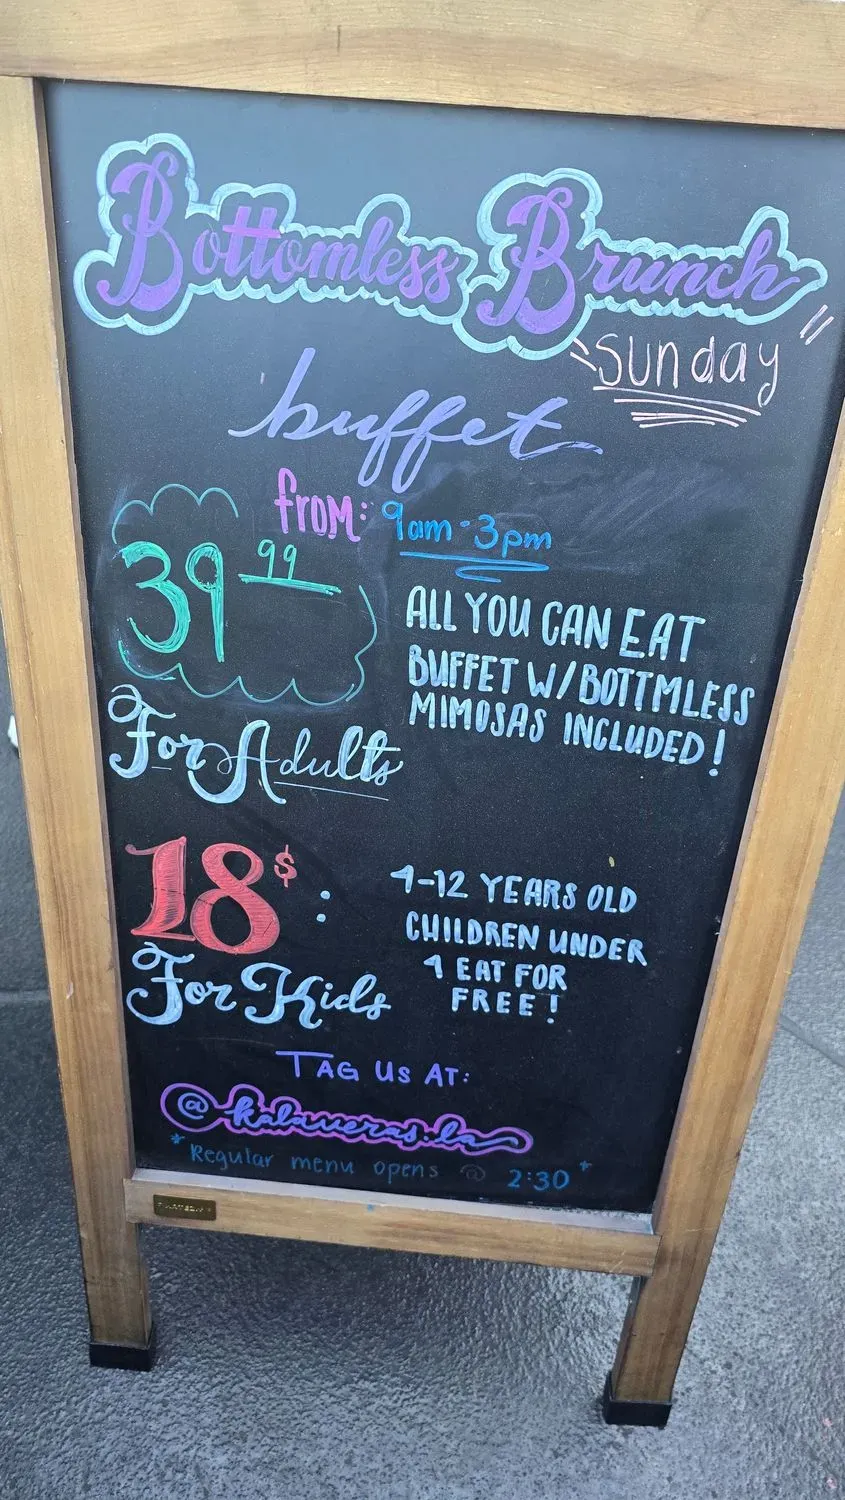 Bottomless Brunch
"Sunday"
buffet
from: 9am-3pm
39.99
ALL YOU CAN EAT
BUFFET W/BOTTMLESS
MIMOSAS INCLUDED!
For Adults
18$ :
4-12 YEARS OLD
CHILDREN UNDER
4 EAT FOR
FREE!
For Kids
TAG US AT:
@kalaveras.la
*Regular menu opens @ 2:30*